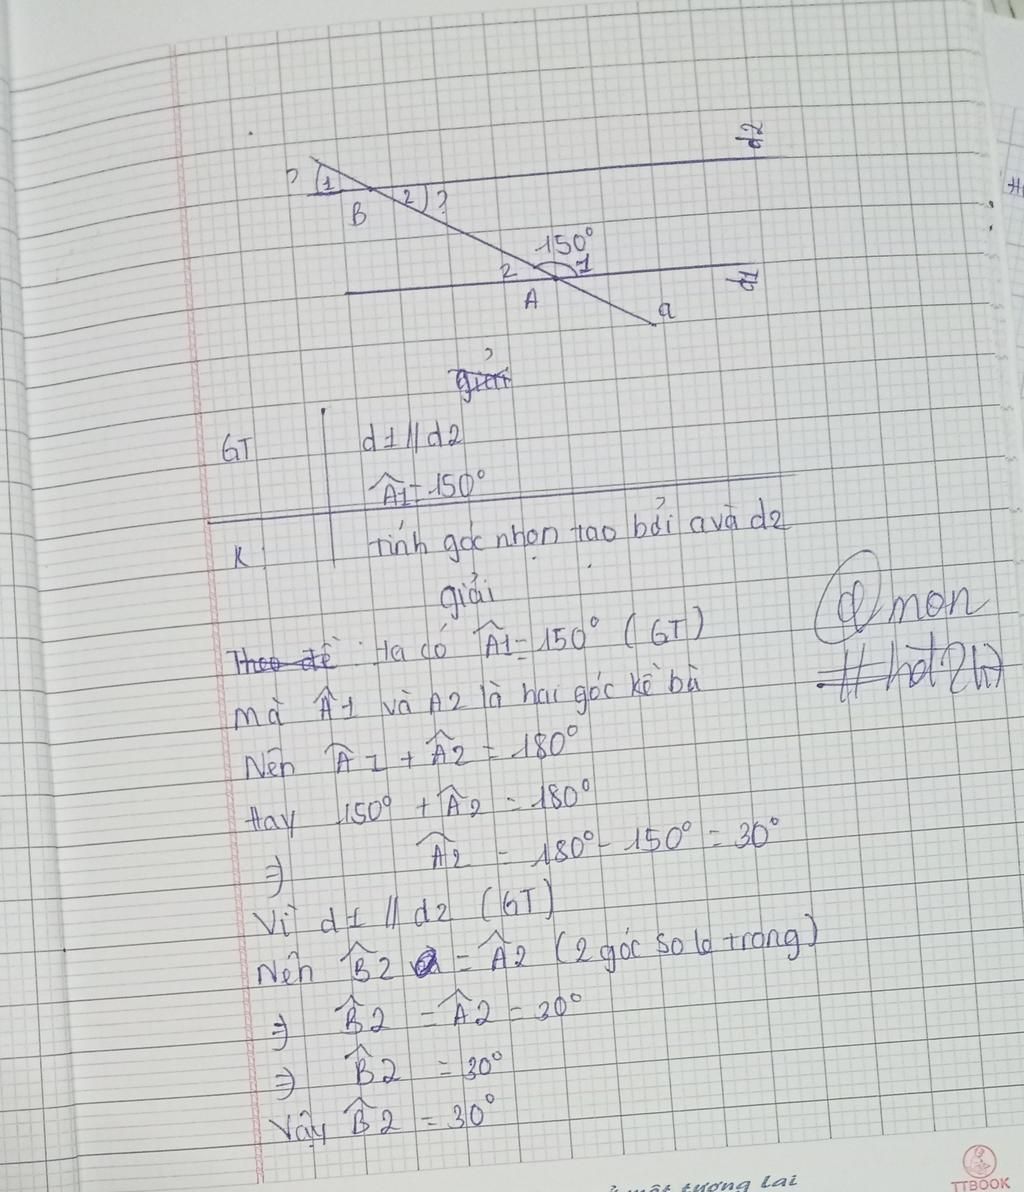 d2
? 1
B
2 ?
150°
2 1
d1
A
a
GT
d1 // d2
Â1 = 150°
K
Tính góc nhọn tạo bởi a và d2
giải
Theo đề : Ta có Â1 = 150° (GT)
@mon
#hot2k7
mà Â1 và A2 là hai góc kề bù
Nên Â1 + Â2 = 180°
Hay 150° + Â2 = 180°
⇒ Â2 = 180° - 150° = 30°
Vì d1 // d2 (GT)
Nên B̂2 = Â2 (2 góc so le trong)
⇒ B̂2 = Â2 = 30°
⇒ B̂2 = 30°
Vậy B̂2 = 30°
tương lai
TTBOOK